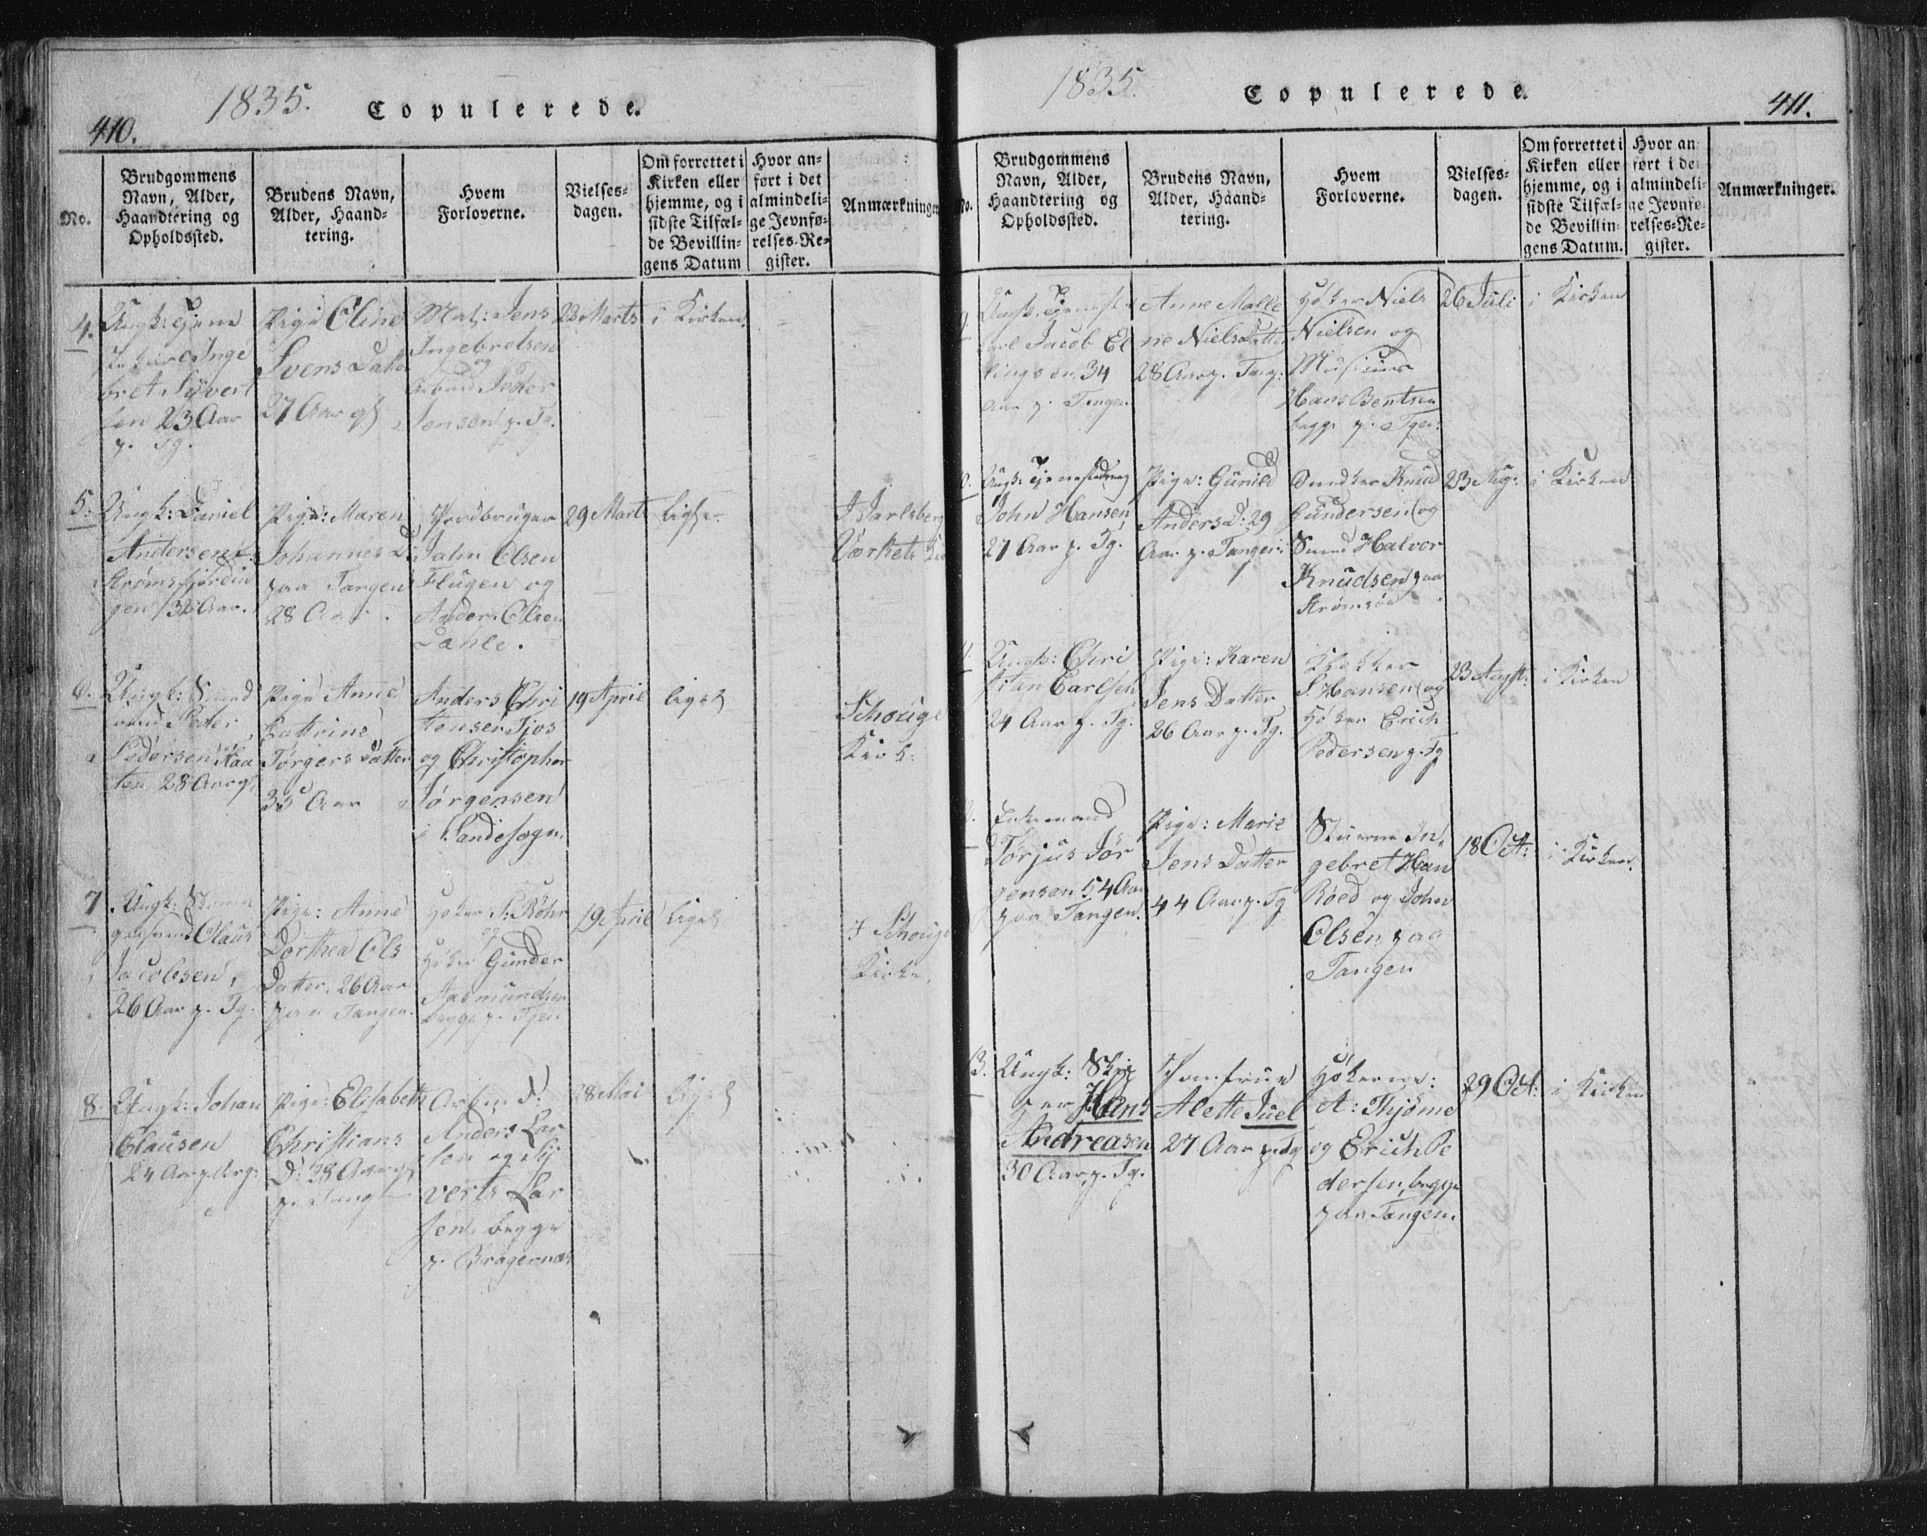 1835.
Copulerede.
410.
No.
Brudgommens
Navn, Alder,
Haandtering og
Opholdssted.
Brudens Navn,
Alder, Haand-
tering.
Hvem
Forloverne.
Vielses-
dagen.
Om forrettet i
Kirken eller
hjemme, og i
sidste Tilfæl-
de Bevillin-
gens Datum
Hvor an-
ført i det
almindeli-
ge Jevnfø-
relses-Re-
gister.
Anmærkninger
4.
Ungk:
Inge
bret Syvert
sen 23 Aar
p. Tg.
Pige Eline
Svens Datter
27 Aar
Jens
Ingebretsen
og
Peder
Jensen p. Tg.
22 Marts
i Kirken
5.
Ungk: Daniel
Andersen
32 Aar.
Pige: Maren
Johannes D:
paa Tangen
28 Aar.
Jordbruger
John Olsen
Flugen og
Anders Olsen
29 Marts
ligs
Jarlsberg
Værkets
6.
Ungk:
Peder
Pedersen
28 Aar
Pige Anne
Cattrine
Jørgers Datter
35 Aar
Anders Chri
stensen
og Christopher
Jørgensen
i Sandesogn.
19 April
ligs
Schouge
Kirk:
7
Ungk:
Claus
Jacobsen,
26 Aar p. Tg.
Pige: Anne
Dorthea Ols
Datter, 26 Aar
paa Tangen.
Høker S: Röhr
og
Høker Gunder
Aasmundsen
begge p. Tgen
19 April
ligs
Schouge
Kirke.
8.
Ungk: Johan
Clausen
24 Aar
Pige: Elisabeth
Christians
D: 28 Aar
p. Tang
Arbm d:
Anders Lar
sen og
verts Lar
sen, begge
p. Bragernæs
28 Mai
ligs
1835.
Copulerede.
411.
No.
Brudgommens
Navn, Alder,
Haandtering og
Opholdssted.
Brudens Navn,
Alder, Haand-
tering.
Hvem
Forloverne.
Vielses-
dagen.
Om forrettet i
Kirken eller
hjemme, og i
sidste Tilfæl-
de Bevillin-
gens Datum.
Hvor an
ført i det
almindeli-
ge Jevnfø-
relses-Re-
gister.
Anmærkninger.
9.
Jacob El
lingsen 34
Aar p. Tangen
Anne Malle
ne Niels Datter
28 Aar p. Tang:
Høker Niels
Nielsen og
Musicus
Hans Bentsen
begge p. Tgen:
26 Juli
i Kirken
John Hansen
27 Aar p. Tg.
Pige: Gunild
Anders D: 29
Aar p. Tangen
Knud
Gundersen og
Halvor
Knudsen paa
Strømsøe
23 Aug:
i Kirken
Ungk: Chri
stian Carlsen
24 Aar p. Tg.
Pige: Karen
Jens Datter
26 Aar p. Tg.
Klokker
S. Hansen og
Høker Erich
Pedersen p. Tg
23 Augst:
i Kirken
Enkemand
Torjus Jør
gensen 54 Aar
paa Tangen.
Pige: Marie
Jens Datter
44 Aar p. Tg
Stuerne In
gebret Han
Röed og John
Olsen, paa
Tangen
18 Oct:
i Kirken.
13.
Ungk: Skip
per Hans
Andreasen
30 Aar, p. Tg.
Jomfrue
Alette Juel
27 Aar p. Tg
Høkerne:
A: Thjøme
og Erich Pe
dersen, begge
paa Tangen.
29 Oct:
i Kirken